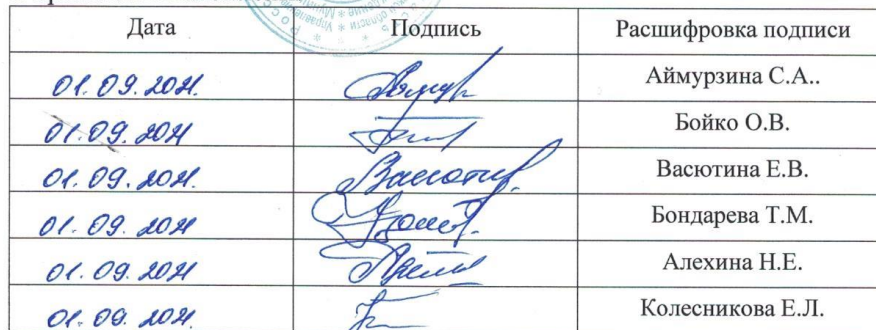 Дата Подпись Расшифровка подписи
01.09.2021. Аймурзина С.А..
01.09.2021 Бойко О.В.
01.09.2021. Васютина Е.В.
01.09.2021 Бондарева Т.М.
01.09.2021 Алехина Н.Е.
01.09.2021. Колесникова Е.Л.